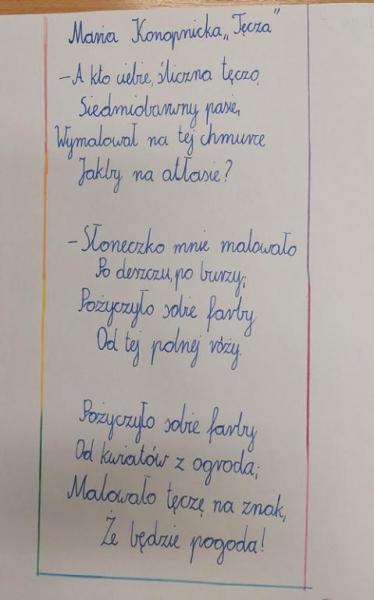 Maria Konopnicka „Tęcza”
– A kto ciebie, śliczna tęczo,
Siedmiobarwny pasie,
Wymalował na tej chmurce
Jakby na atłasie?
– Słoneczko mnie malowało
Po deszczu, po burzy;
Pożyczyło sobie farby
Od tej polnej róży.
Pożyczyło sobie farby
Od kwiatów z ogroda;
Malowało tęczę na znak,
Że będzie pogoda!